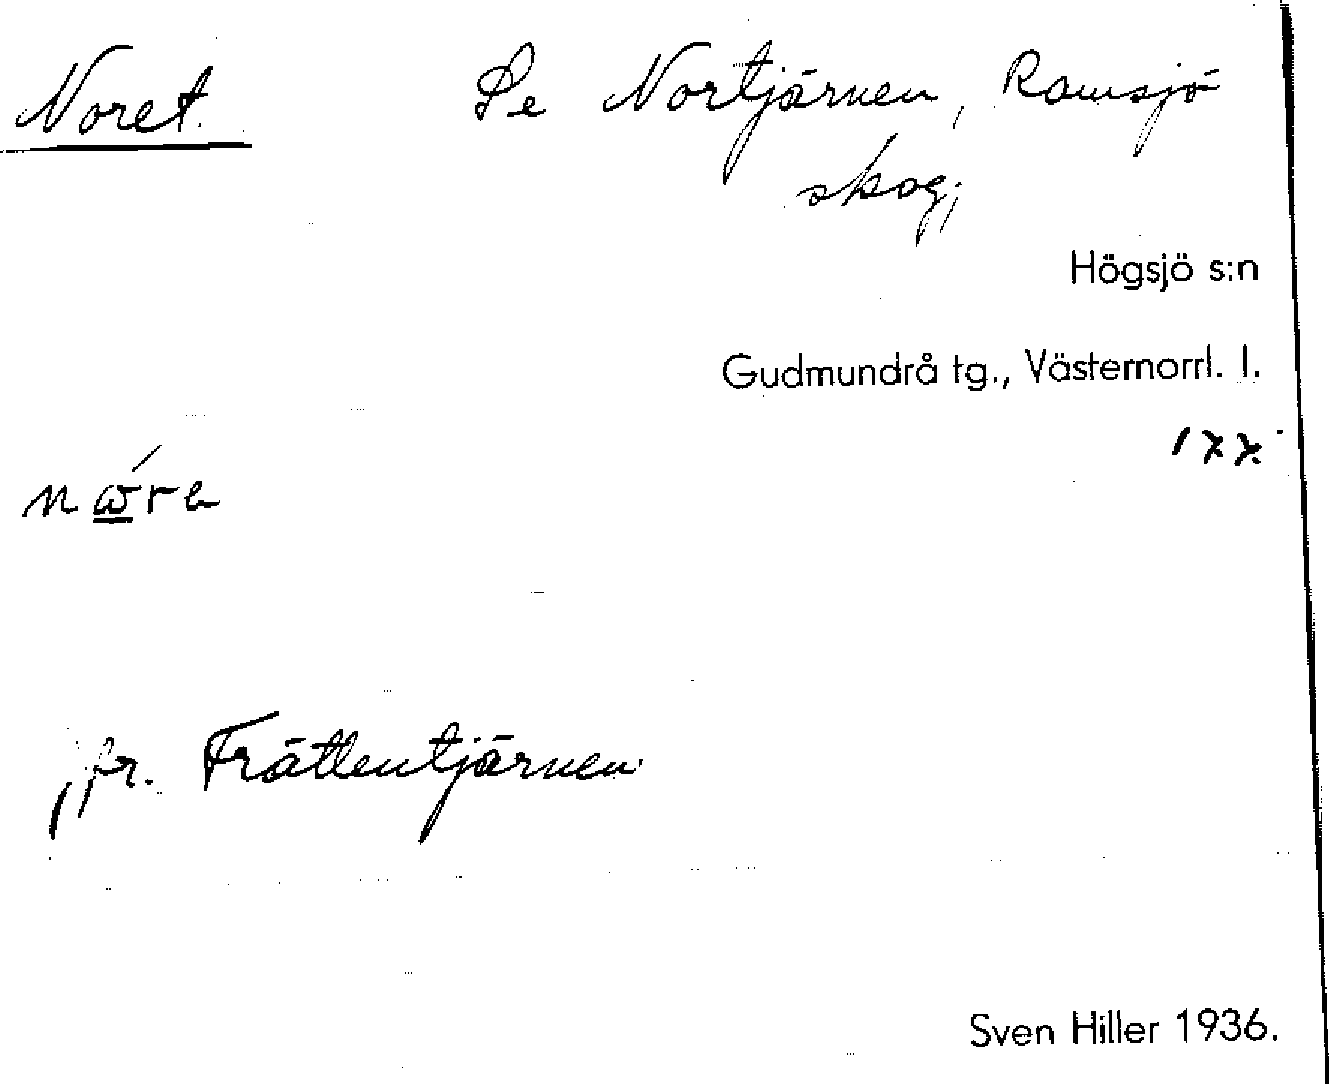 Noret. Se Nortjärnen, Ramsjö
skog;
Högsjö s:n
Gudmundrå tg., Västernorrl. l.
1xx
jfr. Frättentjärnen
Sven Hiller 1936.